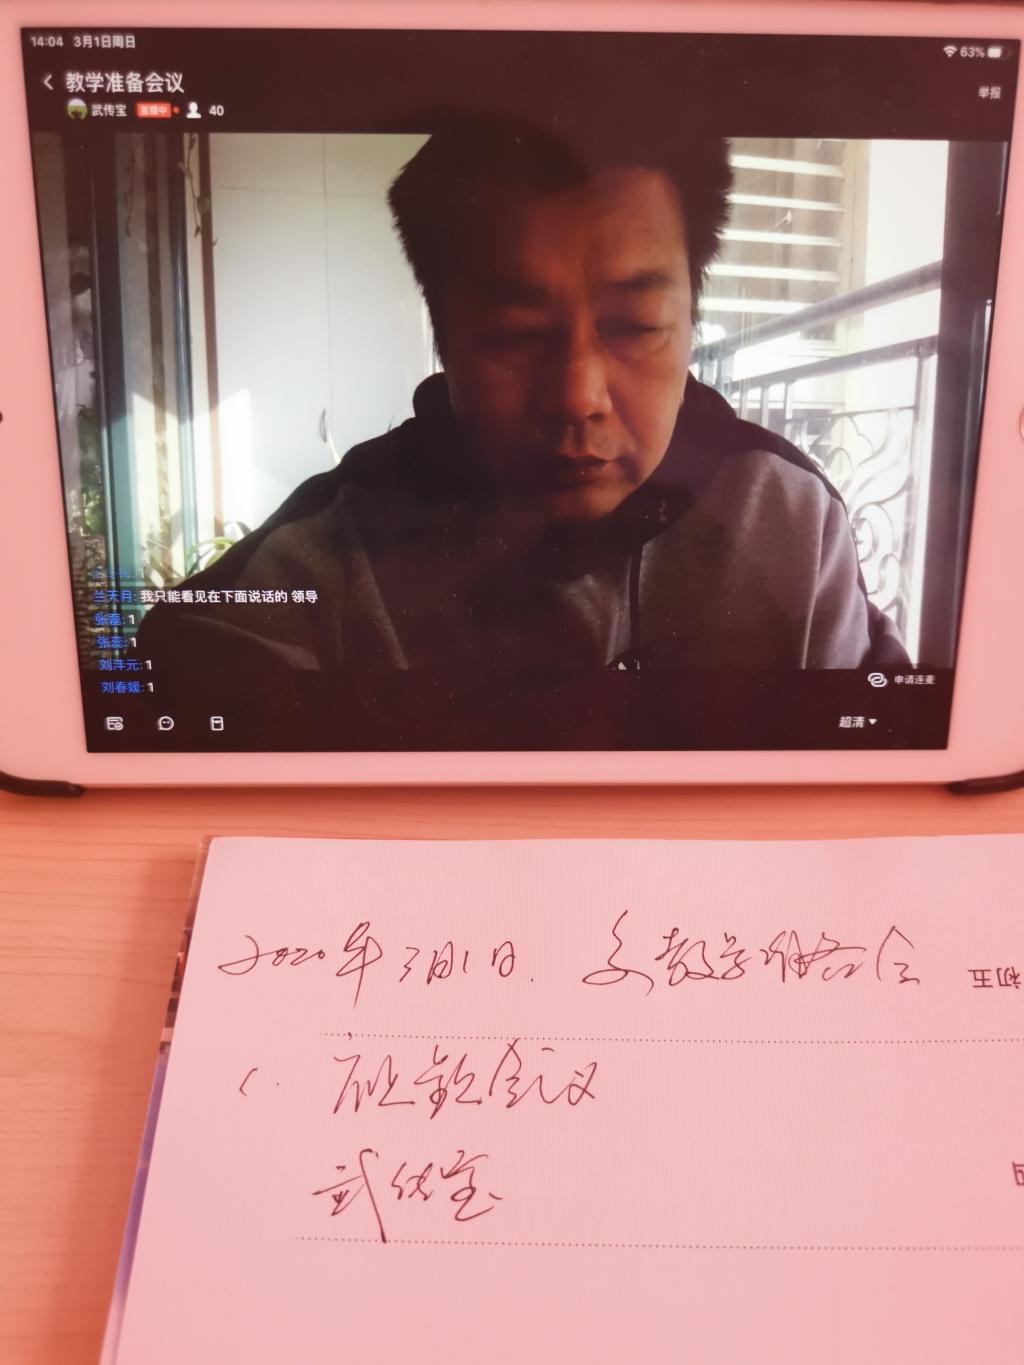 14:04 3月1日周日
63%
教学准备会议
举报
武传宝 直播中 40
兰天月: 我只能看见在下面说话的 领导
张磊: 1
张蕊: 1
刘沣元: 1
刘春媛: 1
申请连麦
超清
2020年3月1日. 教学准备会
初五
会议
武传宝